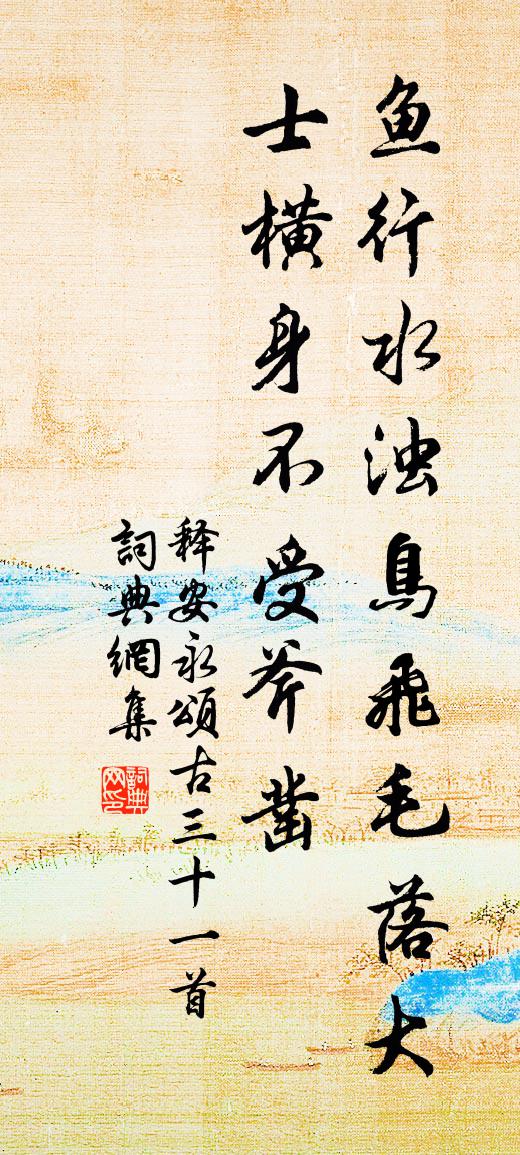 鱼行水浊鳥飛毛落大
士橫身不受斧凿
释安永頌古三十一首
詞典網集
詞典
网印